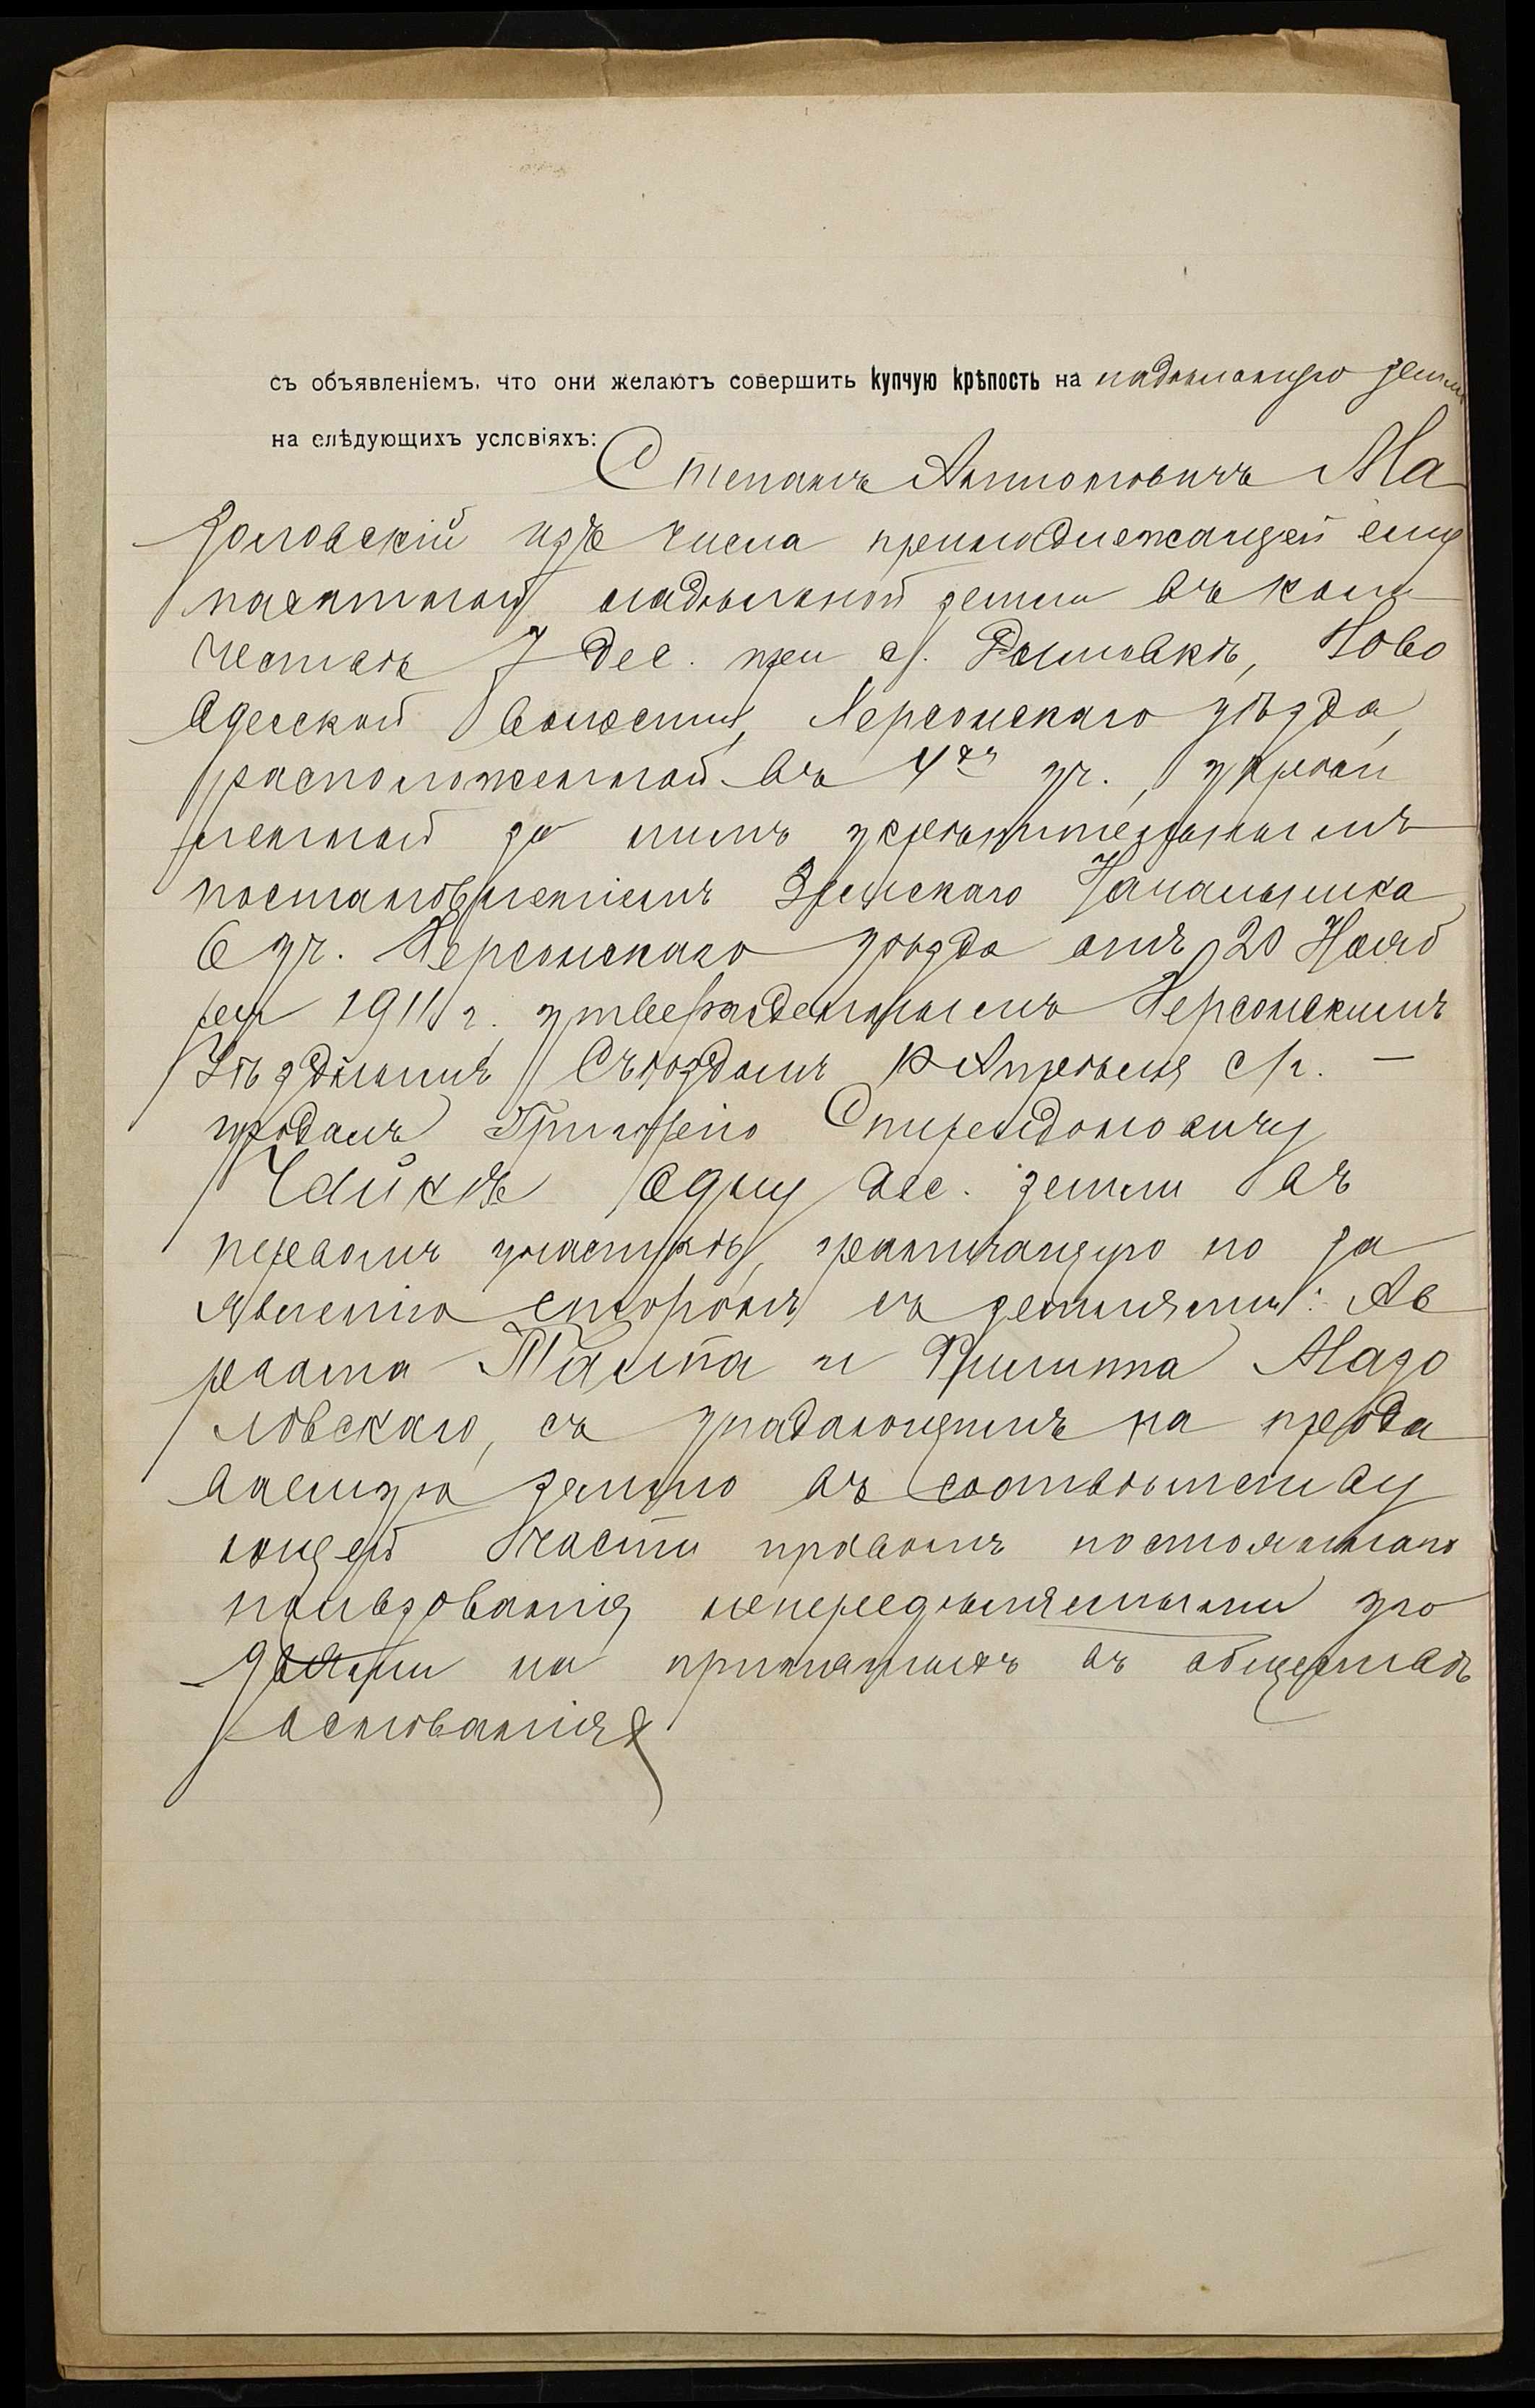 съ объявленіемъ, что они желаютъ совершить купчую крѣпость на надѣльную землю
на слѣдующихъ условіяхъ:
Степанъ Антоновичъ Ма
золовскій изъ числа принадлежащей ему
пахатной надѣльной земли въ коли
чествѣ 7 дес. при с. Новo
одесской волости, Херсонскаго уѣзда,
расположенной въ 4хъ уч., укрѣп
ленной за нимъ укрѣпительнымъ
постановленіемъ Земскаго Начальника
6 уч. Херсонскаго уѣзда отъ 20 Нояб
ря 1911 г. утвержденнымъ Херсонскимъ
Уѣзднымъ Съѣздомъ Апрѣля с/г. —
продалъ Григорію Спиридоновичу
Чайкѣ одну дес. земли въ
первомъ участкѣ, граничащую по за
явленію сторонъ съ землями: Ав
раама и Филиппа Мазо
ловскаго, съ упадающимъ на прода
ваемую землю въ соотвѣтству
ющей части правомъ постояннаго
пользованія непередѣляемыми уго
дьями на принятыхъ въ обществѣ
основаніяхъ